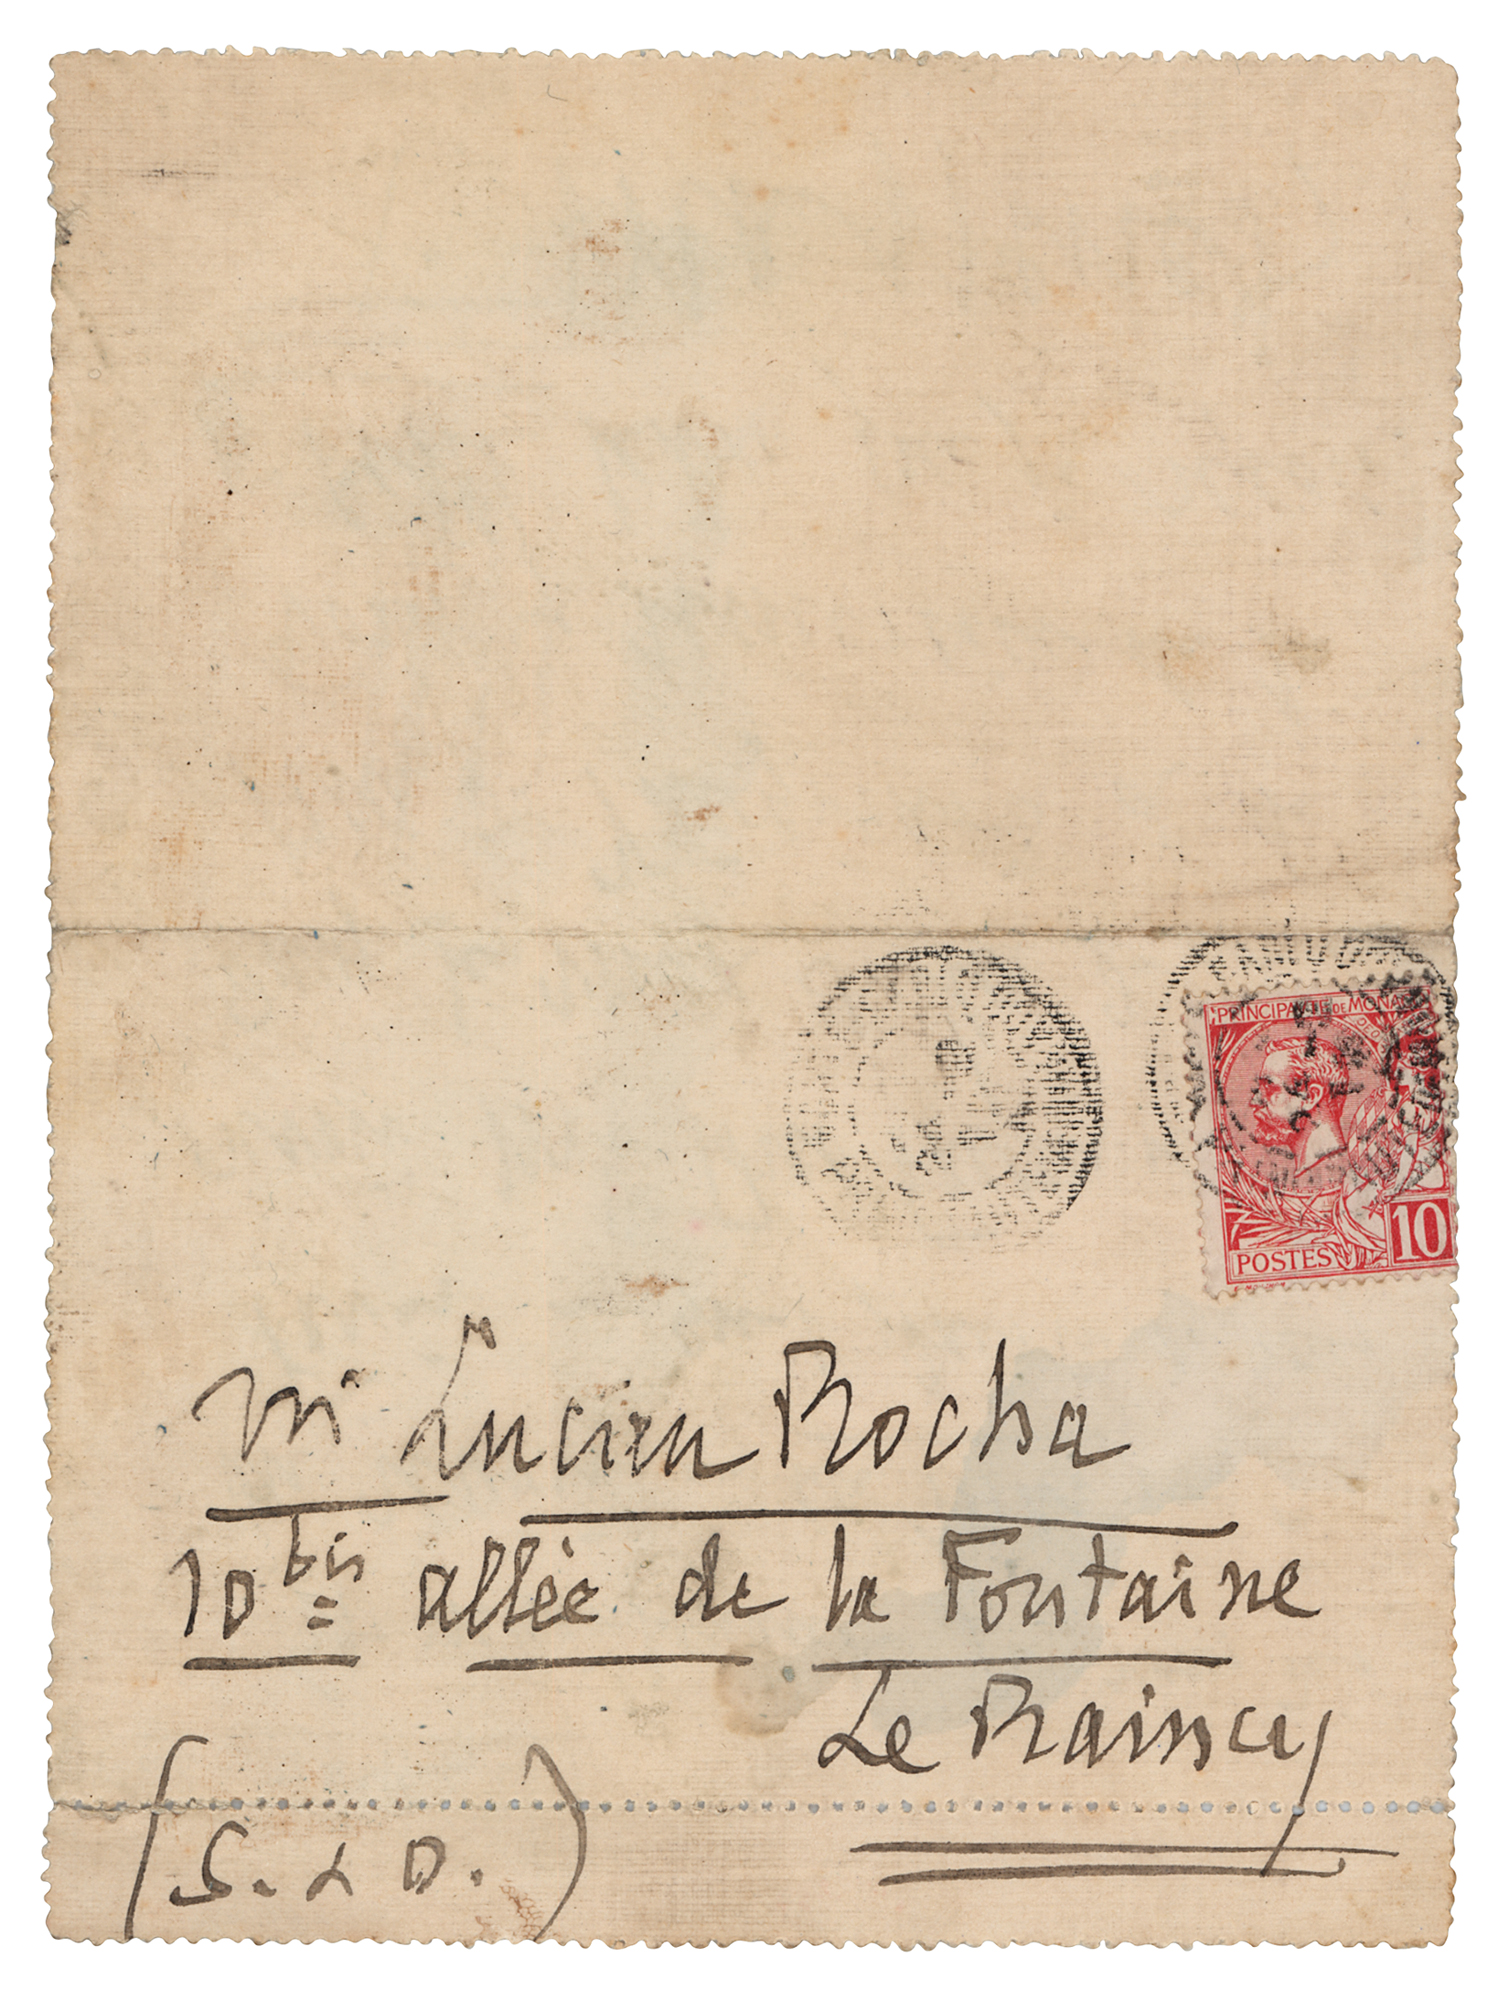 PRINCIPAUTE DE MONACO
POSTES 10
Mr Lucien Rocha
10 bis allée de la Fontaine
Le Raincy
(S. & O.)